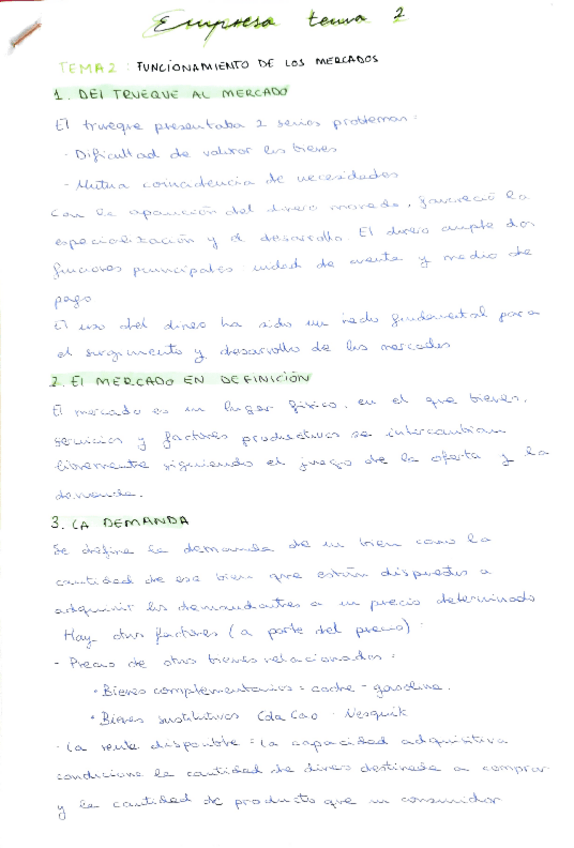 Empresa tema 2
TEMA 2: FUNCIONAMIENTO DE LOS MERCADOS
1. DEl TRUEQUE AL MERCADO
El trueque presentaba 2 serios problemas:
· Dificultad de valorar los bienes
· Mutua coincidencia de necesidades
Con la aparición del dinero moneda, favoreció la
especialización y el desarrollo. El dinero cumple dos
funciones principales: unidad de cuenta y medio de
pago
El uso del dinero ha sido un hecho fundamental para
el surgimiento y desarrollo de los mercados
2. El MERCADO EN DEFINICIÓN
El mercado es un lugar físico, en el que bienes,
servicios y factores productivos se intercambian
libremente siguiendo el juego de la oferta y la
demanda.
3. LA DEMANDA
Se define la demanda de un bien como la
cantidad de ese bien que están dispuestos a
adquirir los demandantes a un precio determinado
Hay otros factores (a parte del precio):
- Precio de otros bienes relacionados:
· Bienes complementarios: coche - gasolina.
· Bienes sustitutivos Cola Cao - Nesquik
· La renta disponible: la capacidad adquisitiva
condiciona la cantidad de dinero destinada a comprar
y la cantidad de producto que un consumidor